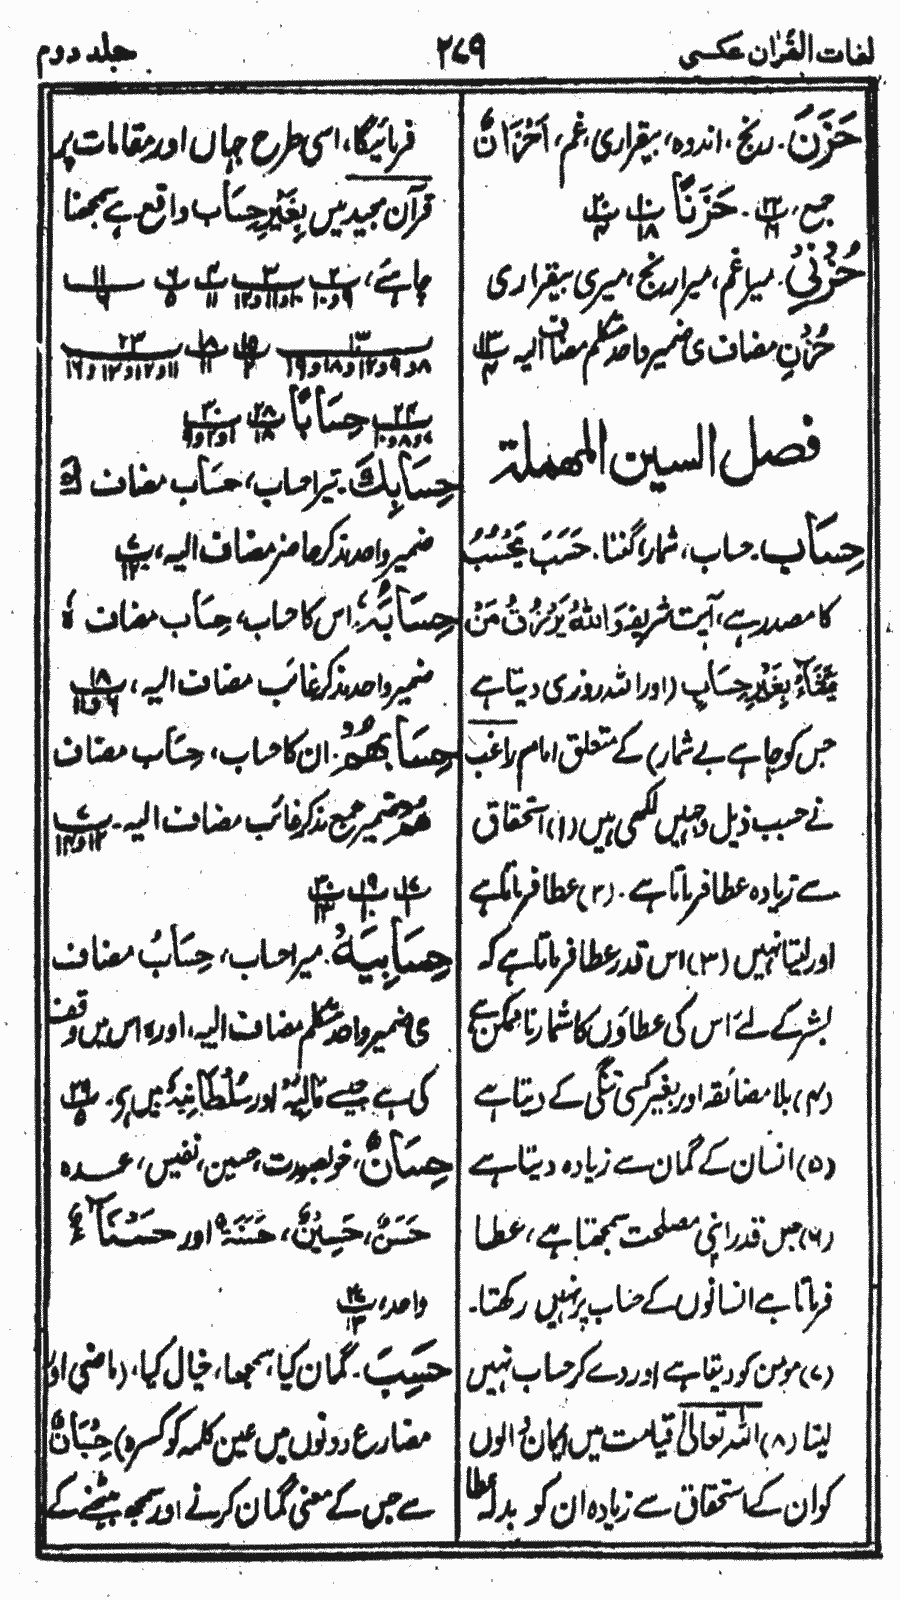 لغات القُرٰان عکسی
۲۷۹
جلد دوم
حَزَنٌ. رنج، اندوہ، بیقراری، غم، اَحْزَانٌ
جمع، ۲۲/۱۶. پ۱۰/۱۸ حَزَنًا پ۲۰/۴
حُزْنِیْ. میرا غم، میرا رنج، میری بیقراری
حُزْنِ مضاف ی ضمیر واحد متکلم مضاف الیہ پ۱۳/۴
فصل السین المهملة
حِسَاب. حساب، شمار، گننا. حَسَبَ یَحْسُبُ
کا مصدر ہے، آیت شریفہ وَاللّٰهُ یَرْزُقُ مَنْ
یَّشَآءُ بِغَیْرِ حِسَابٍ (اور اللہ روزی دیتا ہے
جس کو چاہے بے شمار) کے متعلق امام راغب
نے حسب ذیل وجہیں لکھی ہیں (۱) استحقاق
سے زیادہ عطا فرماتا ہے. (۲) عطا فرماتا ہے
اور لیتا نہیں (۳) اس قدر عطا فرماتا ہے کہ
بشر کے لئے اس کی عطاؤں کا شمار نا ممکن ہے
(۴) بلا مضائقہ اور بغیر کسی تنگی کے دیتا ہے
(۵) انسان کے گمان سے زیادہ دیتا ہے
(۶) جس قدر اپنی مصلحت سمجھتا ہے، عطا
فرماتا ہے انسانوں کے حساب پر نہیں رکھتا.
(۷) مومن کو دیتا ہے اور دے کر حساب نہیں
لیتا (۸) اللہ تعالیٰ قیامت میں ایمان والوں
کو ان کے استحقاق سے زیادہ ان کو بدلہ عطا
فرمائیگا، اسی طرح جہاں اور مقامات پر
قرآن مجید میں بِغَیْرِ حِسَاب واقع ہے سمجھنا
چاہئے،
حِسَابًا
حِسَابِكَ. تیرا حساب، حِسَاب مضاف كَ
ضمیر واحد مذکر حاضر مضاف الیہ، پ۷/۱۲
حِسَابُہٗ، اس کا حساب، حِسَاب مضاف ہٗ
ضمیر واحد مذکر غائب مضاف الیہ، پ۱۸/۶و۱۱
حِسَابُهُمْ. ان کا حساب، حِسَاب مضاف
هُمْ ضمیر جمع مذکر غائب مضاف الیہ. پ۷/۱۲و۱۴
پ۱۷/۱ پ۱۹/۱۰ پ۳۰/۱۳
حِسَابِیَہْ. میرا حساب، حِسَابُ مضاف
ی ضمیر واحد متکلم مضاف الیہ، اور ہ اس میں وقف
کی ہے جیسے مَالِیَہْ اور سُلْطَانِیَہْ میں ہے. پ۲۹/۵
حِسَانٌ، خوبصورت، حسین، نفیس، عمدہ
حَسَنٌ، حَسِیْنٌ، حَسَنَۃٌ اور حَسْنَآءُ
واحد، پ۲۷/۱۳
حَسِبَ. گمان کیا، سمجھا، خیال کیا، (ماضی اور
مضارع دونوں میں عین کلمہ کو کسرہ) حِسْبَانٌ
سے جس کے معنی گمان کرنے اور سمجھ بیٹھنے کے